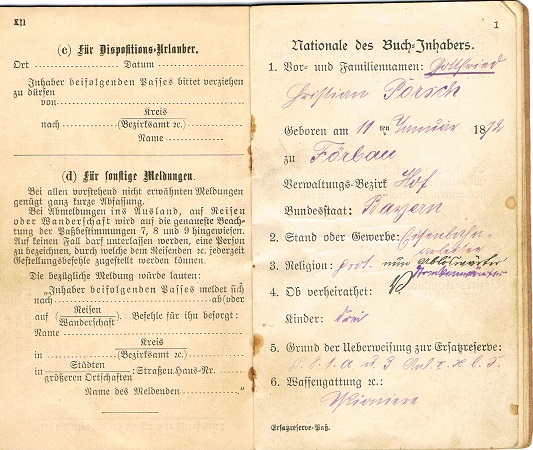 XII
(c) Für Dispositions-Urlauber.
Ort Datum
Inhaber beifolgenden Passes bittet verziehen
zu dürfen
von
Kreis
nach (Bezirksamt ꝛc.)
Name
(d) Für sonstige Meldungen.
Bei allen vorstehend nicht erwähnten Meldungen
genügt ganz kurze Abfassung.
Bei Abmeldungen ins Ausland, auf Reisen
oder Wanderschaft wird auf die genaueste Beach-
tung der Paßbestimmungen 7, 8 und 9 hingewiesen.
Auf keinen Fall darf unterlassen werden, eine Person
zu bezeichnen, durch welche dem Reisenden ꝛc. jederzeit
Gestellungsbefehle zugestellt werden können.
Die bezügliche Meldung würde lauten:
„Inhaber beifolgenden Passes meldet sich
nach ab (oder
auf (Reisen
Wanderschaft). Befehle für ihn besorgt:
Name
Kreis
in (Bezirksamt ꝛc.)
in Städten
größeren Ortschaften : Straßen, Haus-Nr.
Name des Meldenden "
1
Nationale des Buch-Inhabers.
1. Vor- und Familiennamen: Gottfried
Christian Porsch
Geboren am 11 ten Januar 1872
zu Förbau
Verwaltungs-Bezirk Hof
Bundesstaat: Bayern
2. Stand oder Gewerbe: Eisenbahn-
arbeiter
3. Religion: prot. nun
4. Ob verheirathet:
Kinder: drei
5. Grund der Ueberweisung zur Ersatzreserve:
6. Waffengattung ꝛc.:
Pioniere
Ersatzreserve-Paß.